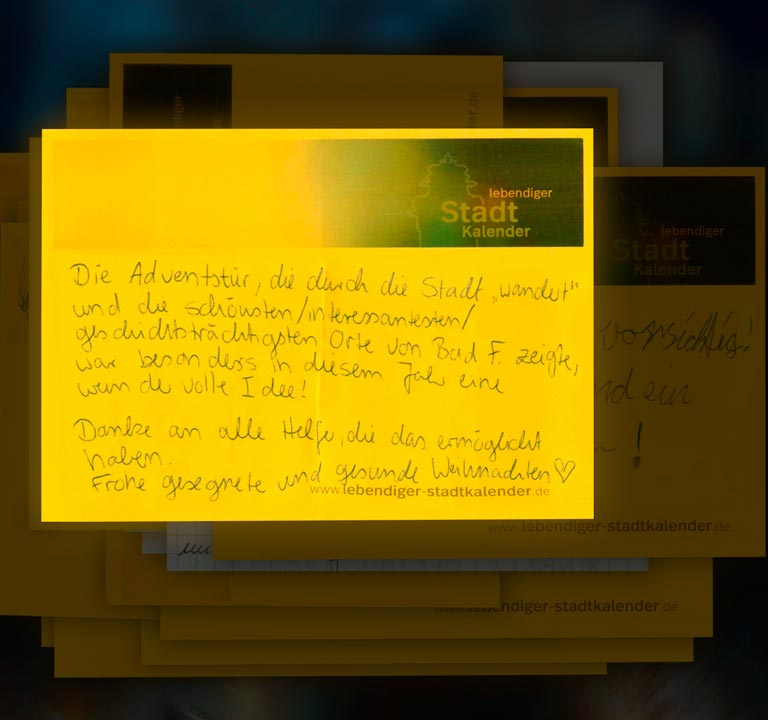 lebendiger
Stadt
Kalender
Die Adventstür, die durch die Stadt „wandert"
und die schönsten/interessantesten/
geschichtsträchtigsten Orte von Bad F. zeigte,
war besonders in diesem Jahr eine
wundervolle Idee!
Danke an alle Helfer, die das ermöglicht
haben.
Frohe gesegnete und gesunde Weihnachten♡
www.lebendiger-stadtkalender.de
lebendiger
.de
lebendiger
Stadt
Kalender
vorsichtig!
ein
!
www.lebendiger-stadtkalender.de
www.lebendiger-stadtkalender.de